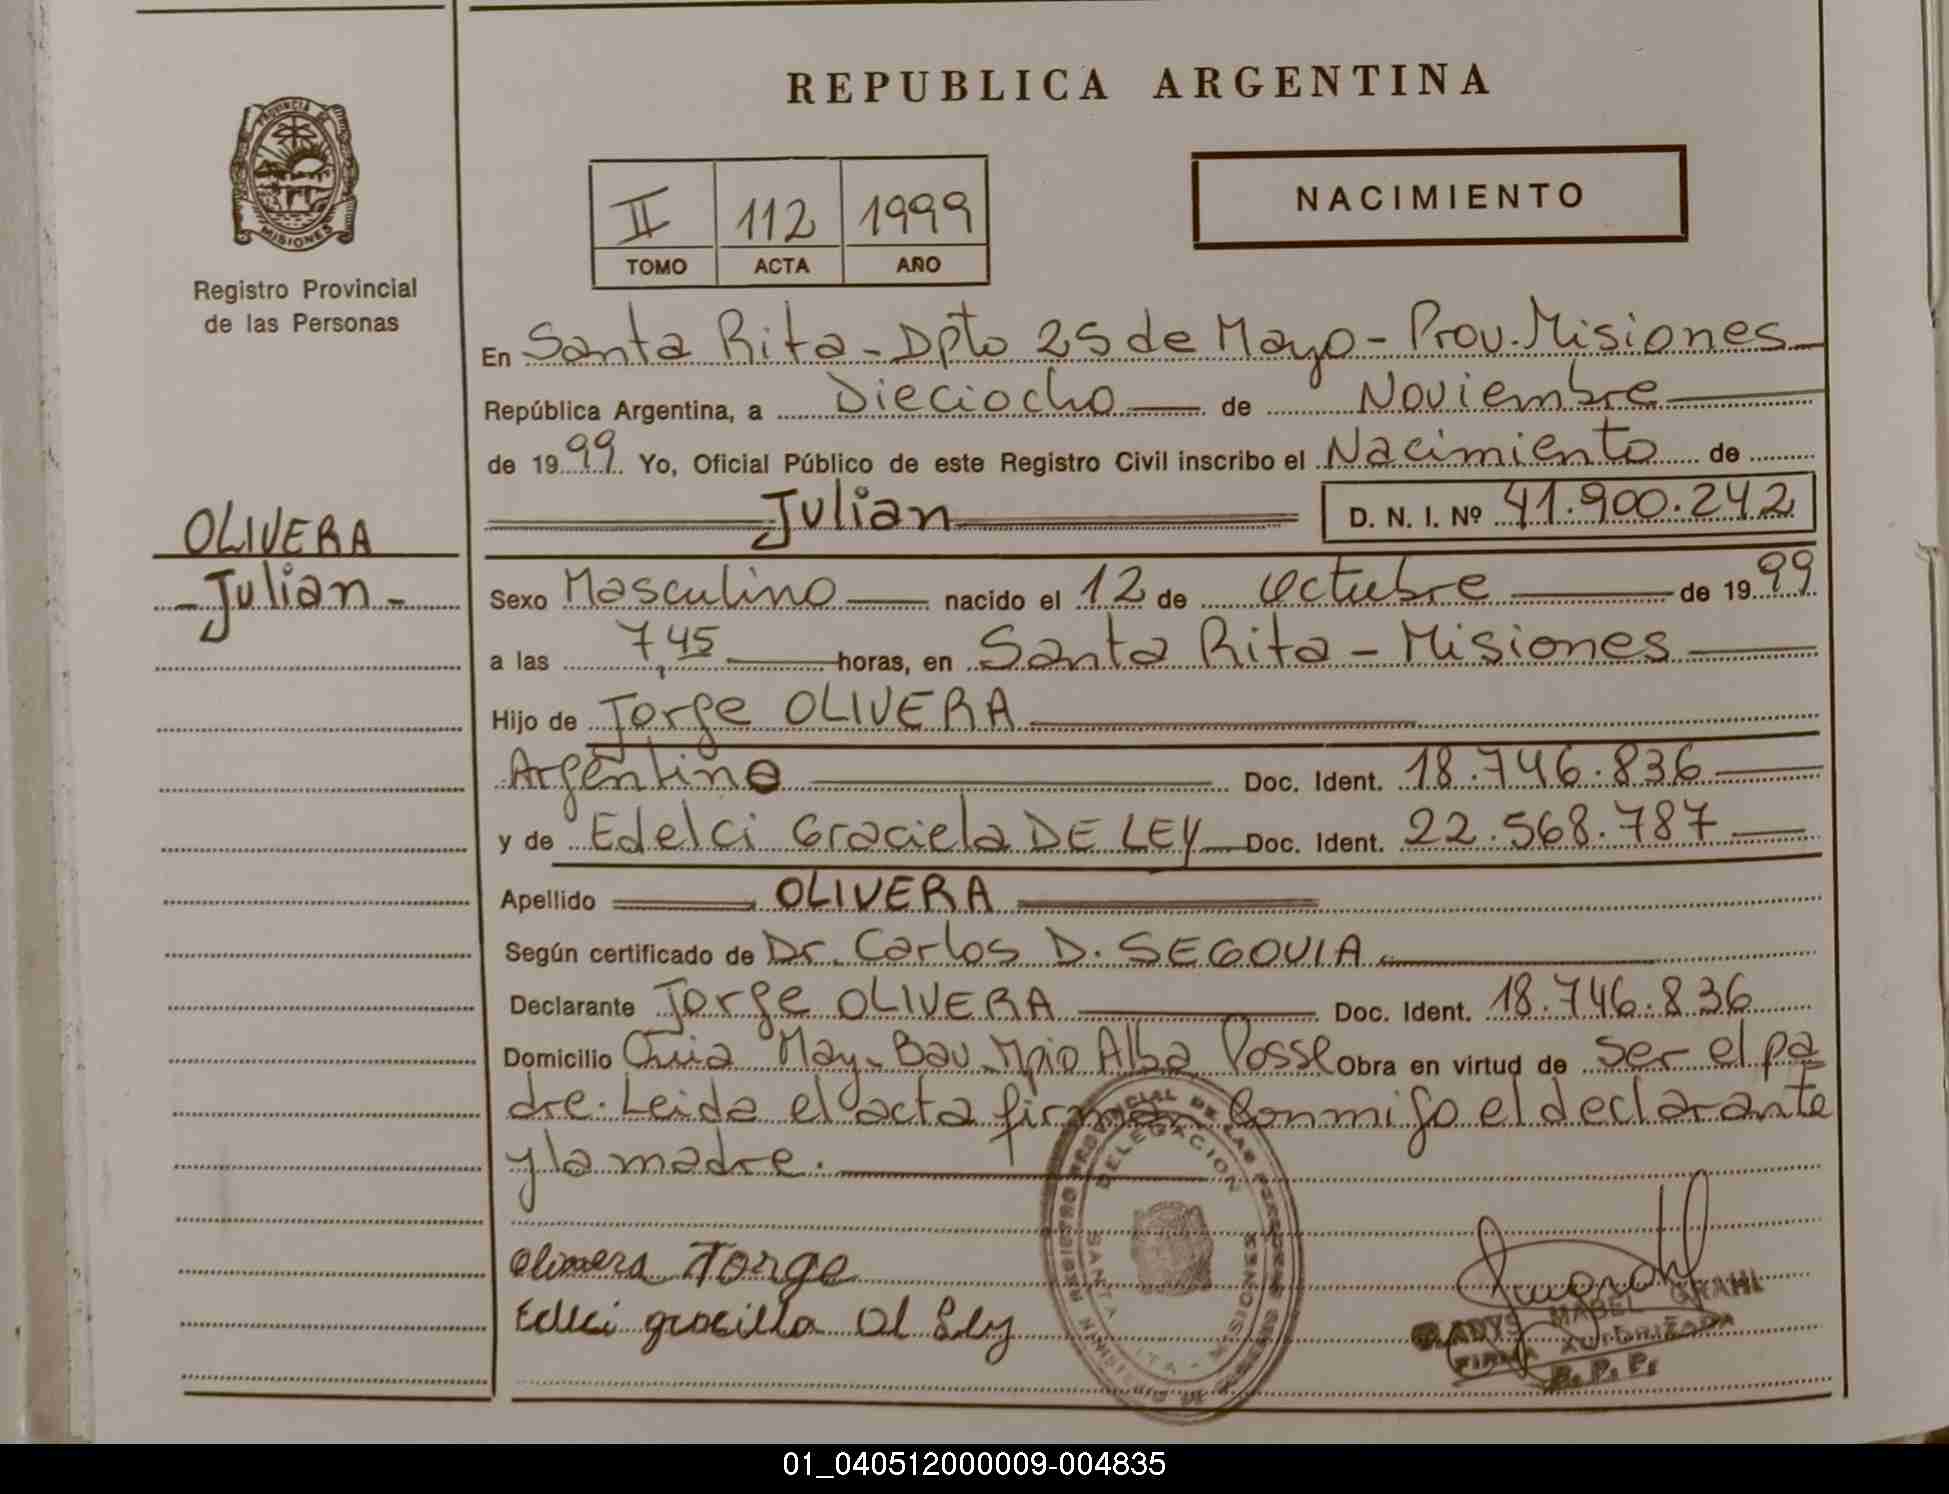 REPUBLICA ARGENTINA
PROVINCIA DE
MISIONES
Registro Provincial
de las Personas
II 112 1999
TOMO ACTA AÑO
NACIMIENTO
En Santa Rita - Dpto 25 de Mayo - Prov. Misiones
República Argentina, a Dieciocho de Noviembre
de 1999 Yo, Oficial Público de este Registro Civil inscribo el Nacimiento de
Julian D. N. I. Nº 41.900.242
OLIVERA
- Julian -
Sexo Masculino nacido el 12 de Octubre de 1999
a las 7,45 horas, en Santa Rita - Misiones
Hijo de Jorge OLIVERA
Argentino Doc. Ident. 18.746.836
y de Edelci Graciela DE LEY Doc. Ident. 22.568.787
Apellido OLIVERA
Según certificado de Dr. Carlos D. SEGOVIA
Declarante Jorge OLIVERA Doc. Ident. 18.746.836
Domicilio May- Mpio Alba Posse Obra en virtud de ser el pa
dre. Leida el acta firman conmigo el declarante
y la madre.
REGISTRO PROVINCIAL DE LAS PERSONAS
DELEGACION
SANTA RITA - MISIONES
MINISTERIO DE GOBIERNO
Olivera Jorge
GLADYS MABEL GRAHL
FIRMA AUTORIZADA
R. P. P.
01_040512000009-004835